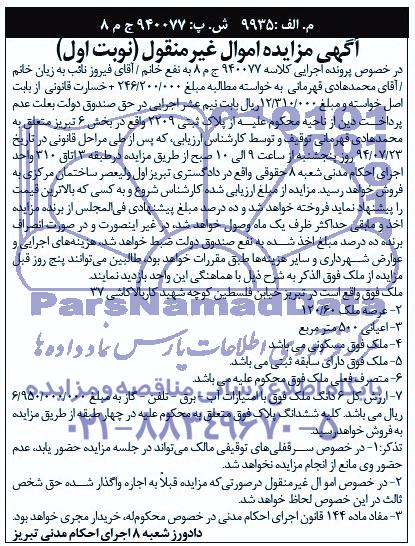 م. الف: ۹۹۳۵ ش. پ: ۹۴۰۰۷۷ ج م ۸
آگهی مزایده اموال غیر منقول (نوبت اول)
در خصوص پرونده اجرایی کلاسه ۹۴۰۰۷۷ ج م ۸ به نفع خانم / آقای فیروز نائب به زیان خانم
/ آقای محمدهادی قهرمانی به خواسته مطالبه مبلغ ۲۴۶/۲۰۰/۰۰۰ + خسارت قانونی از بابت
اصل خواسته و مبلغ ۱۲/۳۱۰/۰۰۰ ریال بابت نیم عشر اجرایی در حق صندوق دولت بعلت عدم
پرداخت دین از ناحیه محکوم علیه از پلاک ثبتی ۲۲۰۹ واقع در بخش ۶ تبریز متعلق به
محمدهادی قهرمانی توقیف و توسط کارشناس ارزیابی، که پس از طی مراحل قانونی در تاریخ
۹۴/۰۷/۲۳ روز پنجشنبه از ساعت ۹ الی ۱۰ صبح از طریق مزایده در طبقه ۲ اتاق ۳۱۰ واحد
اجرای احکام مدنی شعبه ۸ حقوقی واقع در دادگستری تبریز اول ولیعصر ساختمان مرکزی به
فروش خواهد رسید. مزایده از مبلغ ارزیابی شده کارشناس شروع و به کسی که بالاترین قیمت
را پیشنهاد نماید فروخته خواهد شد و ده درصد مبلغ پیشنهادی فی‌المجلس از برنده مزایده
اخذ و مابقی حداکثر ظرف یک ماه وصول خواهد شد، در غیر اینصورت و در صورت انصراف
برنده ده درصد مبلغ اخذ شده به نفع صندوق دولت ضبط خواهد شد، هزینه‌های اجرایی و
عوارض شهرداری و سایر هزینه‌ها طبق مقررات خواهد بود، طالبین می‌توانند پنج روز قبل
از مزایده از ملک فوق الذکر به شرح ذیل با هماهنگی این واحد بازدید نمایند.
ملک فوق واقع است در تبریز خیابان فلسطین کوچه شهید کاربالاکاشی ۳۷
۲- عرصه ملک ۱۲۰/۶۰
۳- اعیانی ۵۰۰ متر مربع
۴- ملک فوق مسکونی می باشد
۵- ملک فوق دارای سابقه ثبتی می باشد.
۶- متصرف فعلی ملک فوق محکوم علیه می باشد.
۷- ارزش کل ۶ دانگ ملک فوق با امتیازات آب - برق - تلفن - گاز به مبلغ ۶/۹۵۰/۰۰۰/۰۰۰
ریال می باشد. کلیه ششدانگ پلاک فوق متعلق به محکوم علیه در چهار طبقه از طریق مزایده
به فروش خواهد رسید.
تذکر: ۱- در خصوص سرقفلی‌های توقیفی مالک می‌تواند در جلسه مزایده حضور یابد، عدم
حضور وی مانع از انجام مزایده نخواهد شد.
۲- در خصوص اموال غیرمنقول درصورتی‌که مزایده قبلاً به اجاره واگذار شده حق شخص
ثالث در این خصوص لحاظ خواهد شد.
۳- مفاد ماده ۱۴۴ قانون اجرای احکام مدنی در خصوص محکوم‌له، خریدار مجری خواهد بود.
دادورز شعبه ۸ اجرای احکام مدنی تبریز
ParsNamadData
پایگاه اطلاع رسانی مناقصه و مزایده
۰۲۱-۸۸۳۴۹۶۷۰-۵